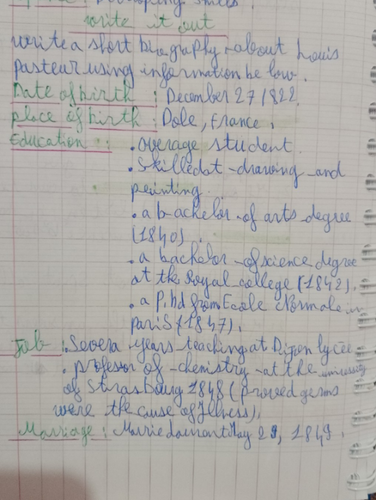 Developing skills.
write it out
write a short biography about Louis
Pasteur using information be low.
Date of birth : December 27 1822.
place of birth : Dole, France.
Education :
. average student.
. Skilled at drawing and
peinting.
. a bachelor of arts degree
(1840).
. a bachelor of science degree
at the Royal college (1842).
. a P.hd from Ecole Normale in
paris (1847).
Job : . Severa years teaching at Dijon lycée
. profesor of chemistry at the university
of Strasbourg 1848 (proved germs
were the cause of Illness).
Marriage : Married Laurent May 29, 1849.